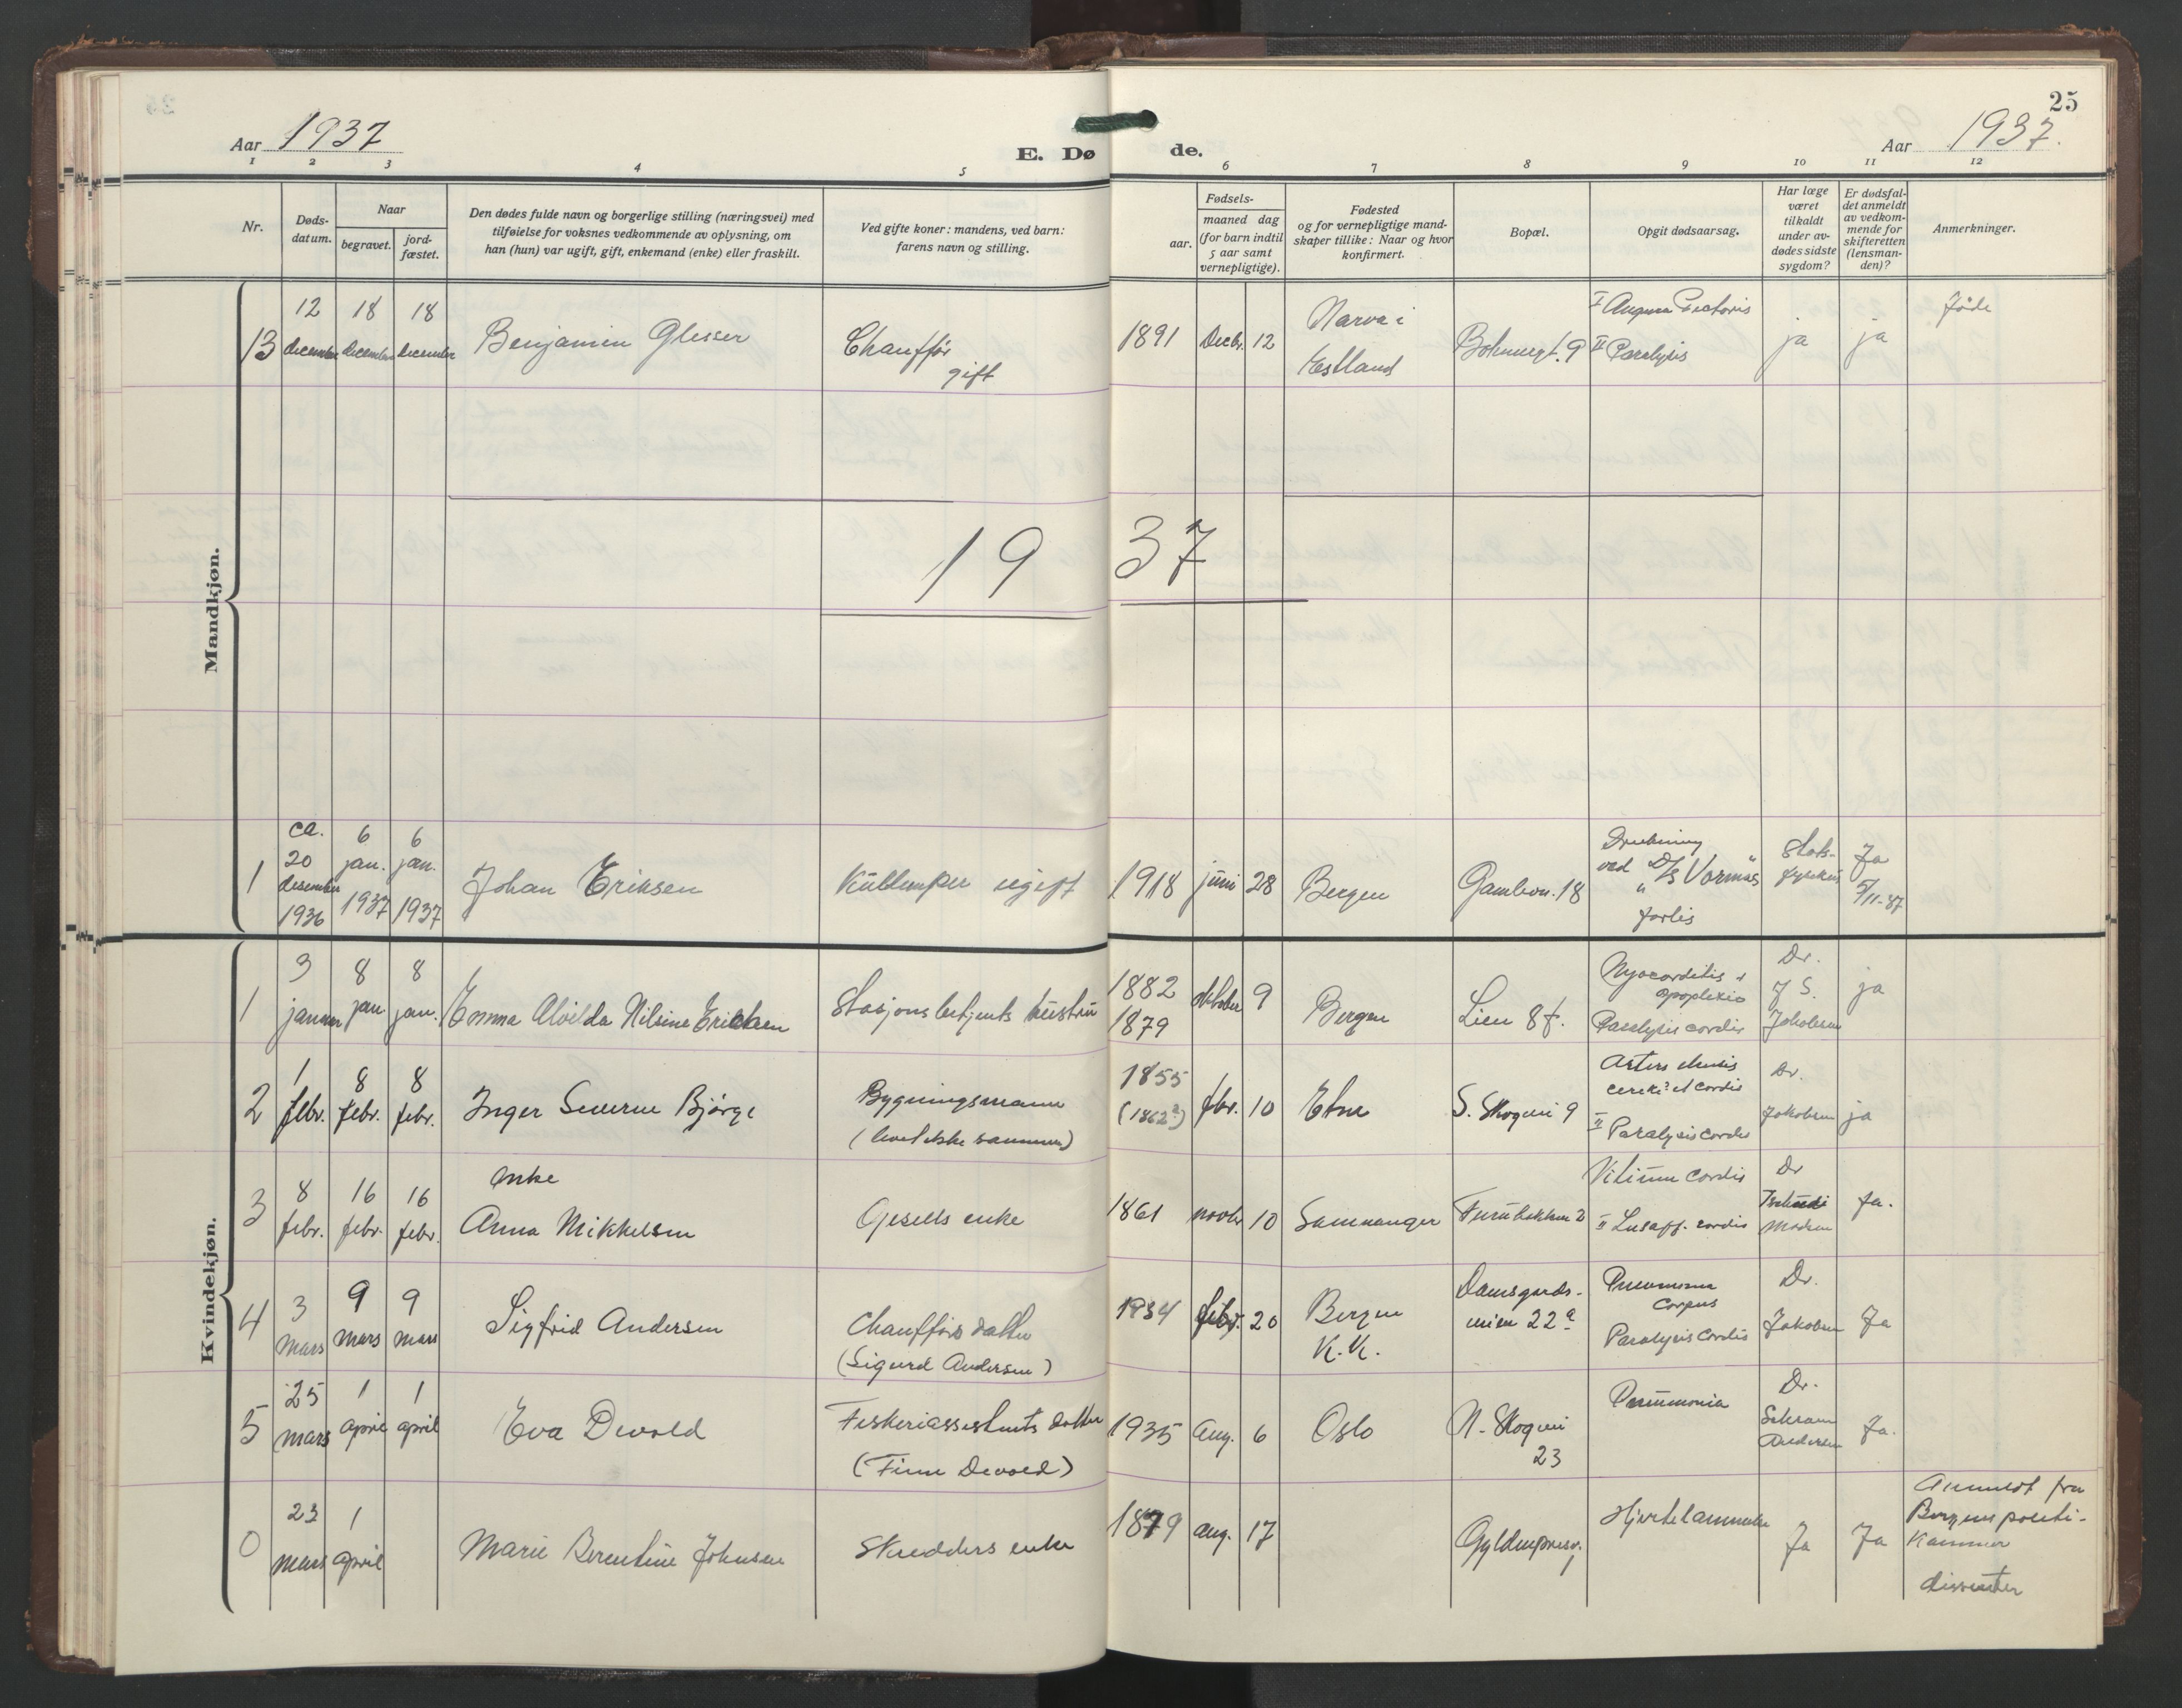 25
Aar 1937
E. Dø de.
Aar 1937.
1 2 3 4 5 6 7 8 9 10 11 12
Nr.
Døds-
datum.
Naar
begravet.
jord-
fæstet.
Den dødes fulde navn og borgerlige stilling (næringsvei) med
tilføielse for voksnes vedkommende av oplysning, om
han (hun) var ugift, gift, enkemand (enke) eller fraskilt.
Ved gifte koner: mandens, ved barn:
farens navn og stilling.
aar.
Fødsels-
maaned dag
(for barn indtil
5 aar samt
vernepligtige).
Fødested
og for vernepligtige mand-
skaper tillike: Naar og hvor
konfirmert.
Bopæl.
Opgit dødsaarsag.
Har læge
været
tilkaldt
under av-
dødes sidste
sygdom?
Er dødsfal-
det anmeldt
av vedkom-
mende for
skifteretten
(lensman-
den)?
Anmerkninger.
Mandkjøn.
13
12
december
18
december
18
december
Benjamin Glesser
Chauffør
gift
1891
Decbr.
12
Narva i
Estland
9
I Angina Pectoris
II Paralysis
ja
ja
Jøde
19 37
1
ca.
20
desember
1936
6
jan.
1937
6
jan.
1937
Johan Eriksen
Küllemper ugift
1918
juni
28
Bergen
18
Drukning
ved D/S "Vormas"
forlis
Stats-
fysikus
Ja
Kvindekjøn.
1
3
januar
8
jan.
8
jan.
Emma Alvilda Nilsine Ericksen
Stasjonsbetjents hustru
1882
1879
oktober
9
Bergen
Lien 8 f.
Myocorditis +
apoplexia
Paralysis cordis
Dr.
J S.
Jakobsen
ja
2
1
febr.
8
febr.
8
febr.
Inger Severine Bjørge
Bygningsmann
(levet ikke sammen)
1855
(1862?)
fbr.
10
Etne
S. Skogvei 9
cordis
II Paralysis cordis
Dr.
Jakobsen
ja
3
8
febr.
16
febr.
16
febr.
Enke
Anna Mikkelsen
Gesells enke
1861
novbr
10
Samnanger
Vitium cordis
II cordis
Dr
Madsen
Ja.
4
3
mars
9
mars
9
mars
Sigfrid Andersen
Chaufførs datter
(Sigurd Andersen)
1934
febr.
20
Bergen
K.K.
Damsgårds-
veien 22a
Pneumonia
Corpus
Paralysis Cordis
Dr.
Jakobsen
Ja
5
25
mars
1
april
1
april
Eva Devold
Fiskeriassistents datter
(Finn Devold)
1935
Aug.
6
Oslo
N. Skogvei
23
Pneumonia
Dr.
Schram
Andersen
Ja.
0
23
mars
1
april
Marie Berentine Johnsen
Skredders enke
1879
aug.
17
Gyldenprisv.
1
Hjertelammelse
Ja
Ja
Anmeldt fra
Bergens politi-
kammer
dissenter